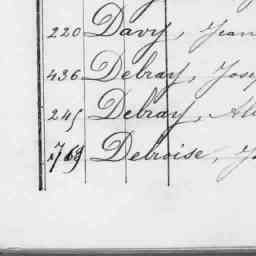 220 Davy, Jean
436 Debray, Jose
245 Debray, Al
769 Debroise, J